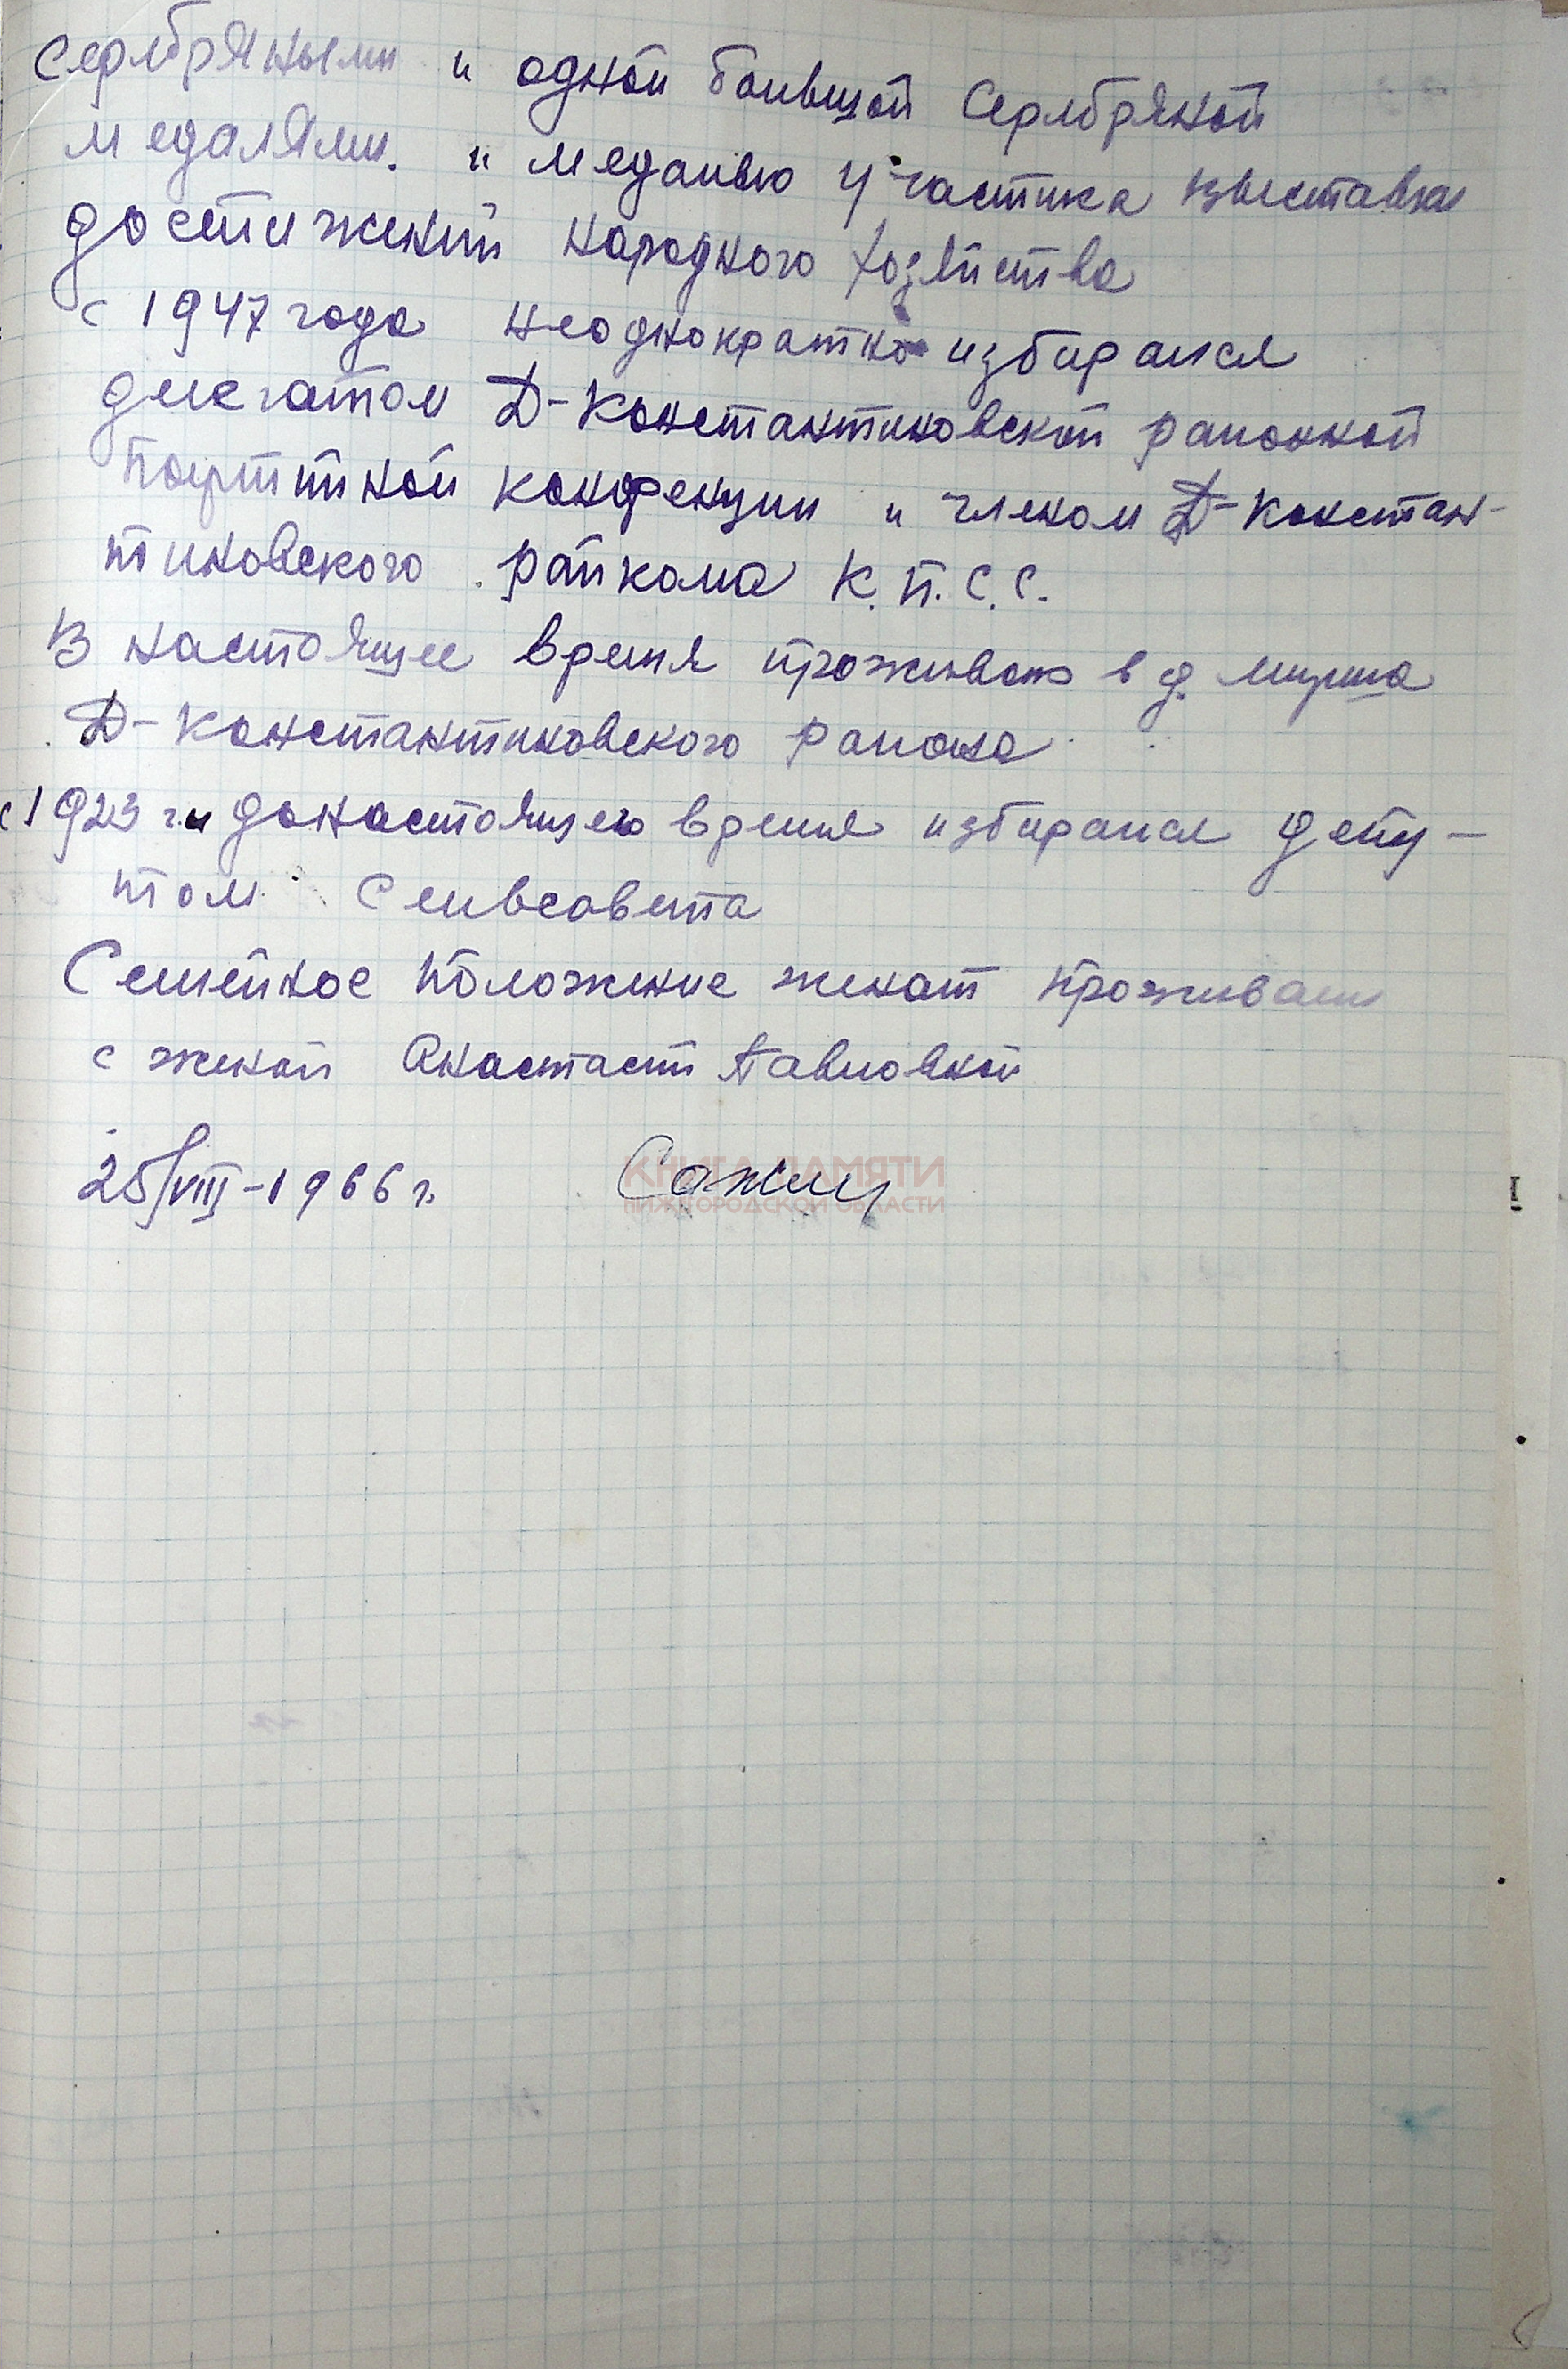 Серебряными и одной большой Серебряной
медалями. и медалью участика выставки
достижений народного хозяйства
с 1947 года неоднократно избирался
делегатом Д-Константиновской районной
Партийной конференции и членом Д-Констан-
тиновского райкома К.П.С.С.
В настоящее время проживаю в д. Мурша
Д-Константиновского района
с 1923 г. и донастоящего время избирался депу-
том Сельсовета
Семейное положение женат проживаем
с женой Анастасий Павловной
25/VIII-1966 г. Сажин
КНИГА ПАМЯТИ
НИЖЕГОРОДСКОЙ ОБЛАСТИ